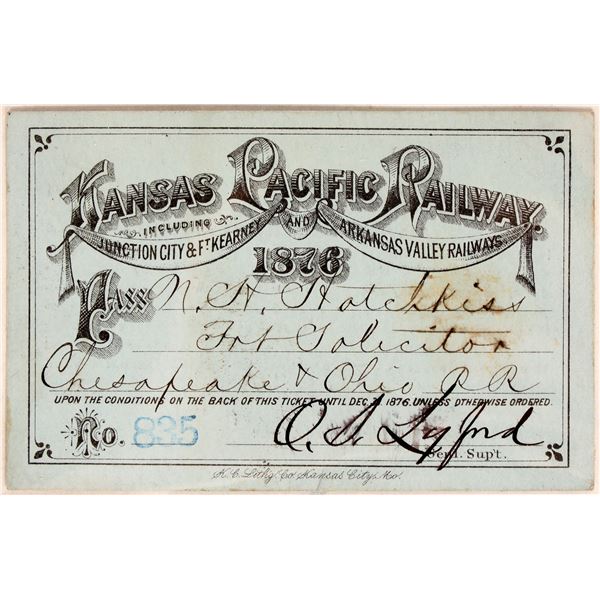 KANSAS PACIFIC RAILWAY
INCLUDING
JUNCTION CITY & FT KEARNEY AND ARKANSAS VALLEY RAILWAYS
1876
Pass N. H. Hotchkiss
Frt Solicitor
Chesapeake & Ohio RR
UPON THE CONDITIONS ON THE BACK OF THIS TICKET UNTIL DEC. 31 1876, UNLESS OTHERWISE ORDERED.
No. 835 O. S. Lyford
Genl. Sup't.
K. C. Lithg. Co. Kansas City, Mo.